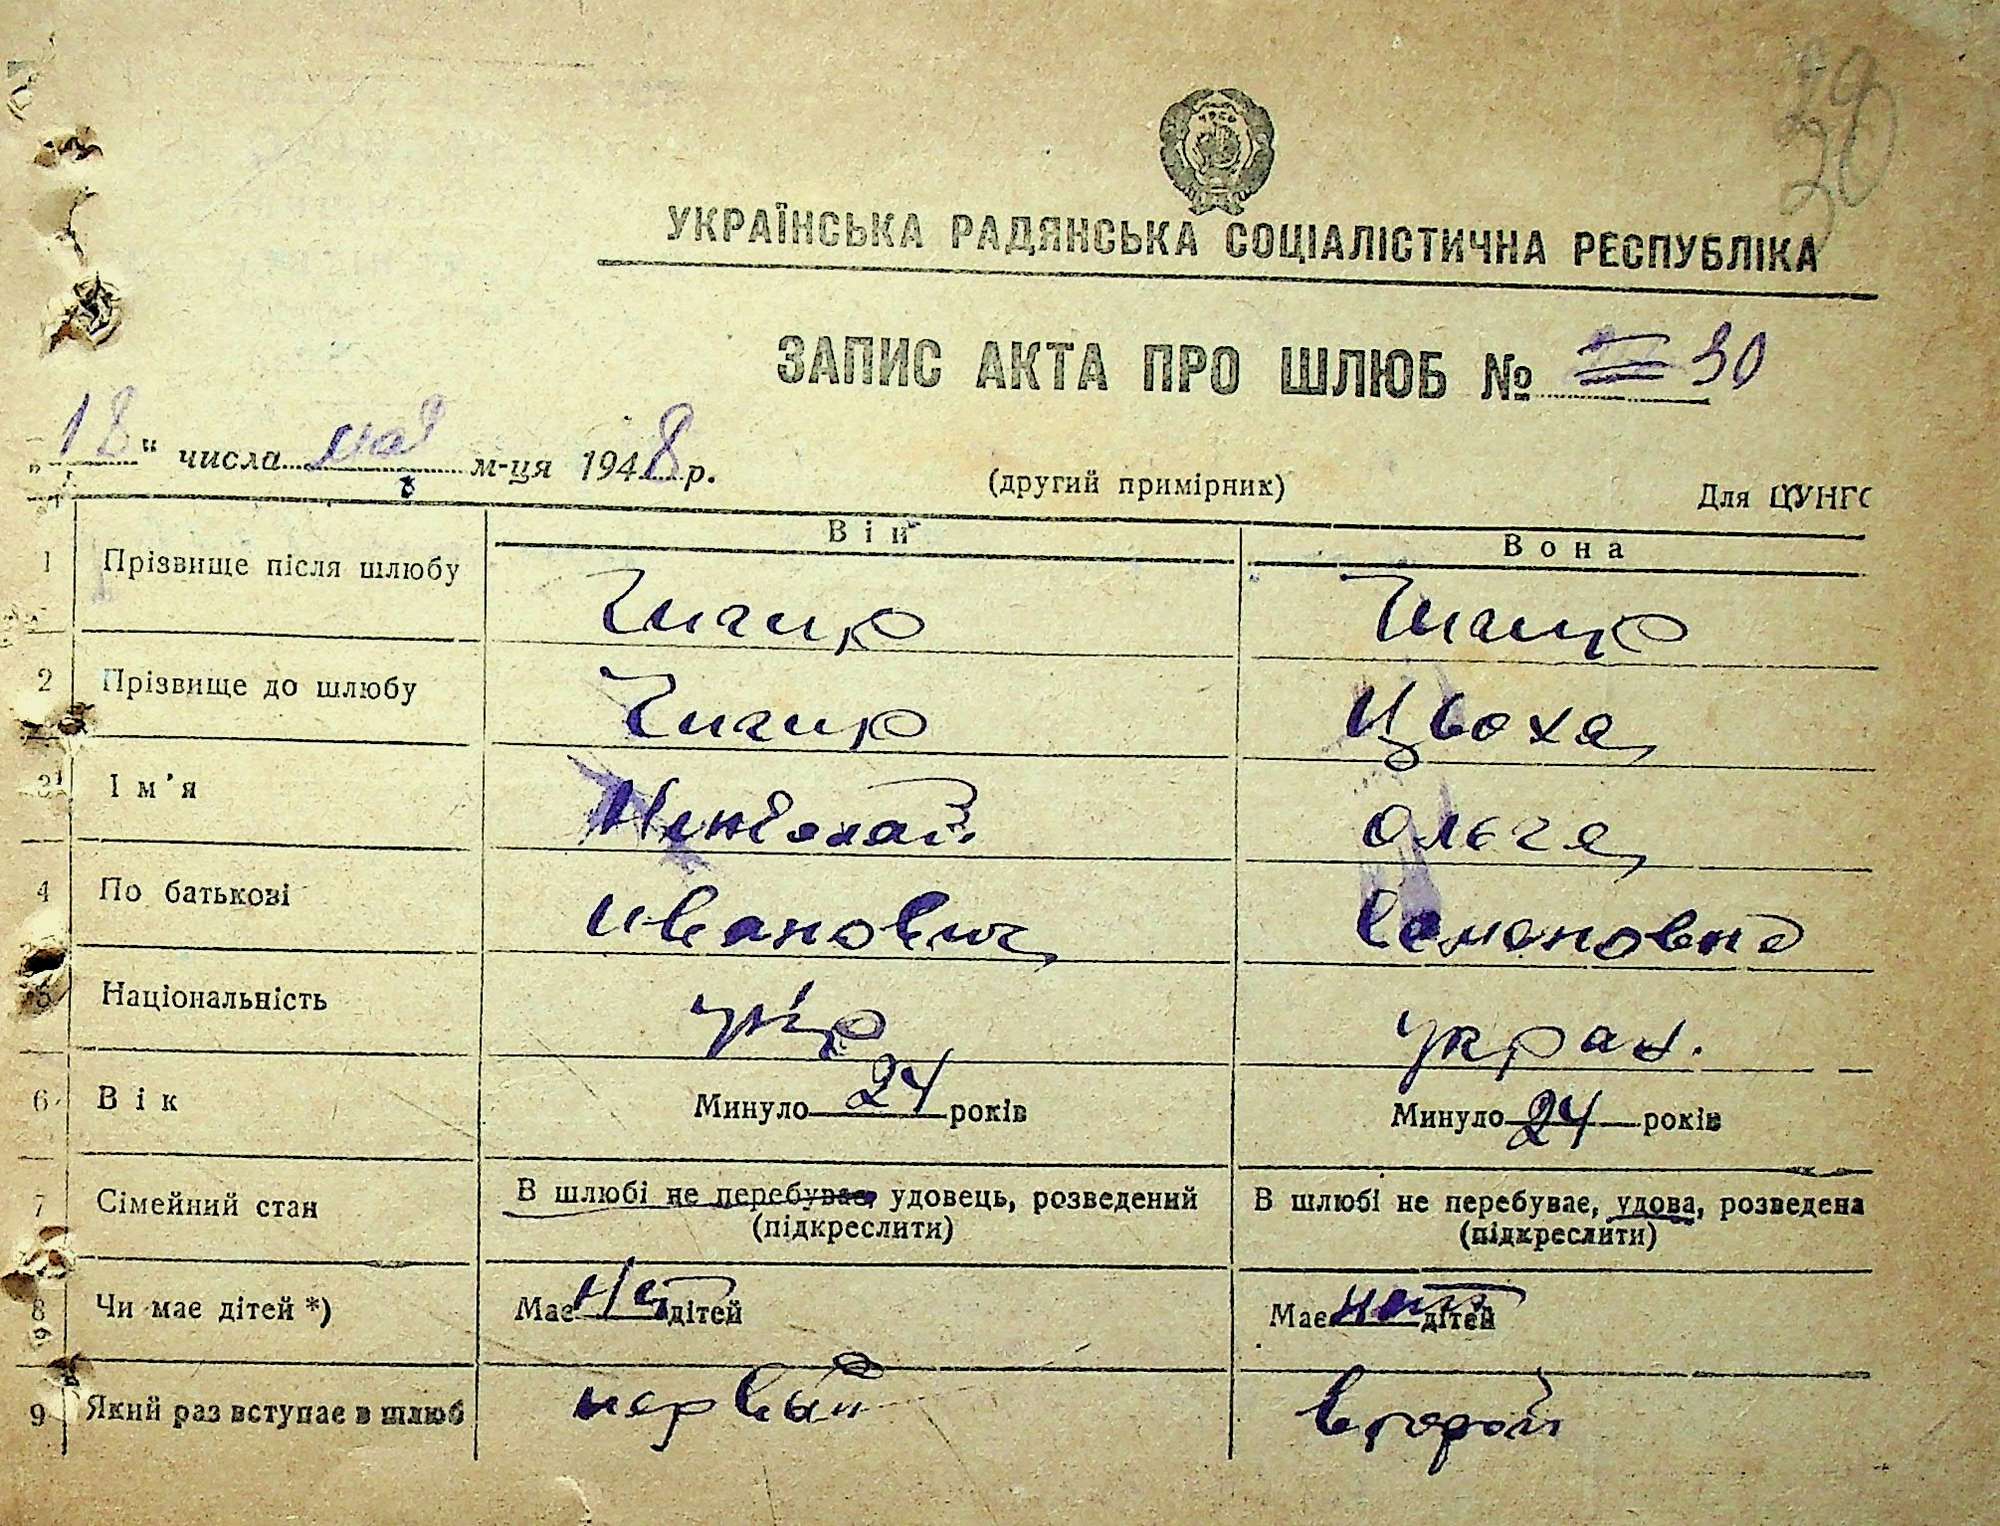 30
УКРАЇНСЬКА РАДЯНСЬКА СОЦІАЛІСТИЧНА РЕСПУБЛІКА
ЗАПИС АКТА ПРО ШЛЮБ № 30
„18“ числа мая м-ця 1948 р.
(другий примірник) Для ЦУНГО
Він Вона
1 Прізвище після шлюбу Чигир Чигир
2 Прізвище до шлюбу Чигир Цьоха
3 Ім'я Николай Ольга
4 По батькові Иванович Семеновна
5 Національність укр украи.
6 Вік Минуло 24 років Минуло 24 років
7 Сімейний стан В шлюбі не перебуває, удовець, розведений В шлюбі не перебуває, удова, розведена
(підкреслити) (підкреслити)
8 Чи має дітей *) Має нет дітей Має нет дітей
9 Який раз вступає в шлюб первый второй